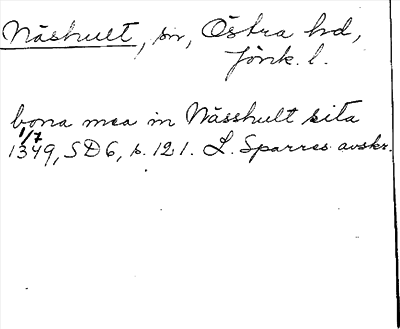 Näshult, sn, Östra hd,
Jönk. l.
bona mea in Nässhult sita
1/7
1349, SD6, s. 121. L. Sparres avskr.